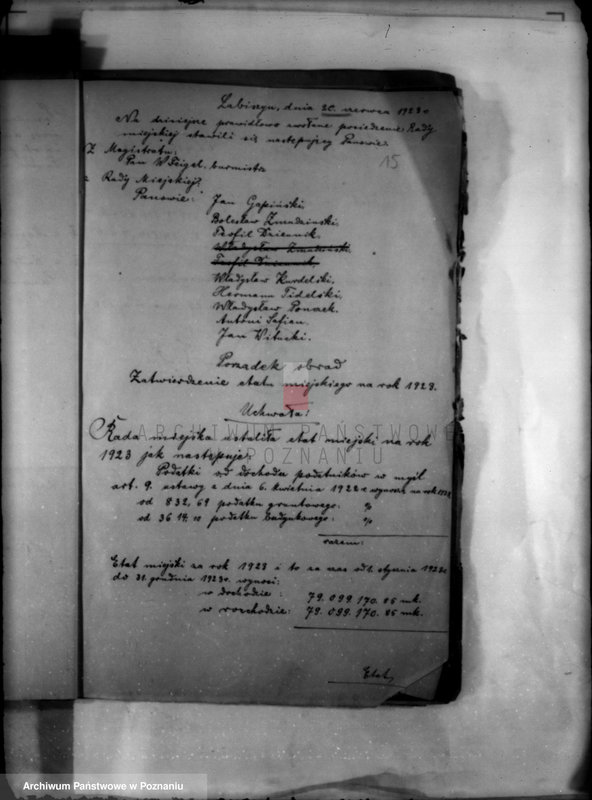 Łabiszyn, dnia 20. czerwca 1923 r.
Na dzisiejsze prawidłowo zwołane posiedzenie Rady
miejskiej stawili się następujący Panowie:
Z Magistratu:
Pan W. Feigel, burmistrz
z Rady Miejskiej:
15
Panowie: Jan Gapiński
Bolesław Zmudzinski.
Teofil Dziennik.
Władysław Zmudzinski
Teofil Dziennik.
Władysław Kurdelski.
Hermann Fidelski.
Władysław Ponach.
Antoni Safian.
Jan Witucki.
Porządek obrad
Zatwierdzenie etatu miejskiego na rok 1923.
Uchwała!
Rada miejska ustaliła etat miejski na rok
ARCHIWUM PAŃSTWOWE
1923 jak następuje:
W POZNANIU
Podatki od dochodu podatników w myśl
art. 9. ustawy z dnia 6. kwietnia 1922 r. wynoszą na rok 1923
od 832,69 podatku gruntowego: %
od 3614,10 podatku budynkowego: %
razem:
Etat miejski za rok 1923 i to za czas od 1. stycznia 1923 r.
do 31. grudnia 1923 r. wynosi:
w dochodzie: 79.099.170.85 mk.
w rozchodzie: 79.099.170.85 mk.
Etat
Archiwum Państwowe w Poznaniu